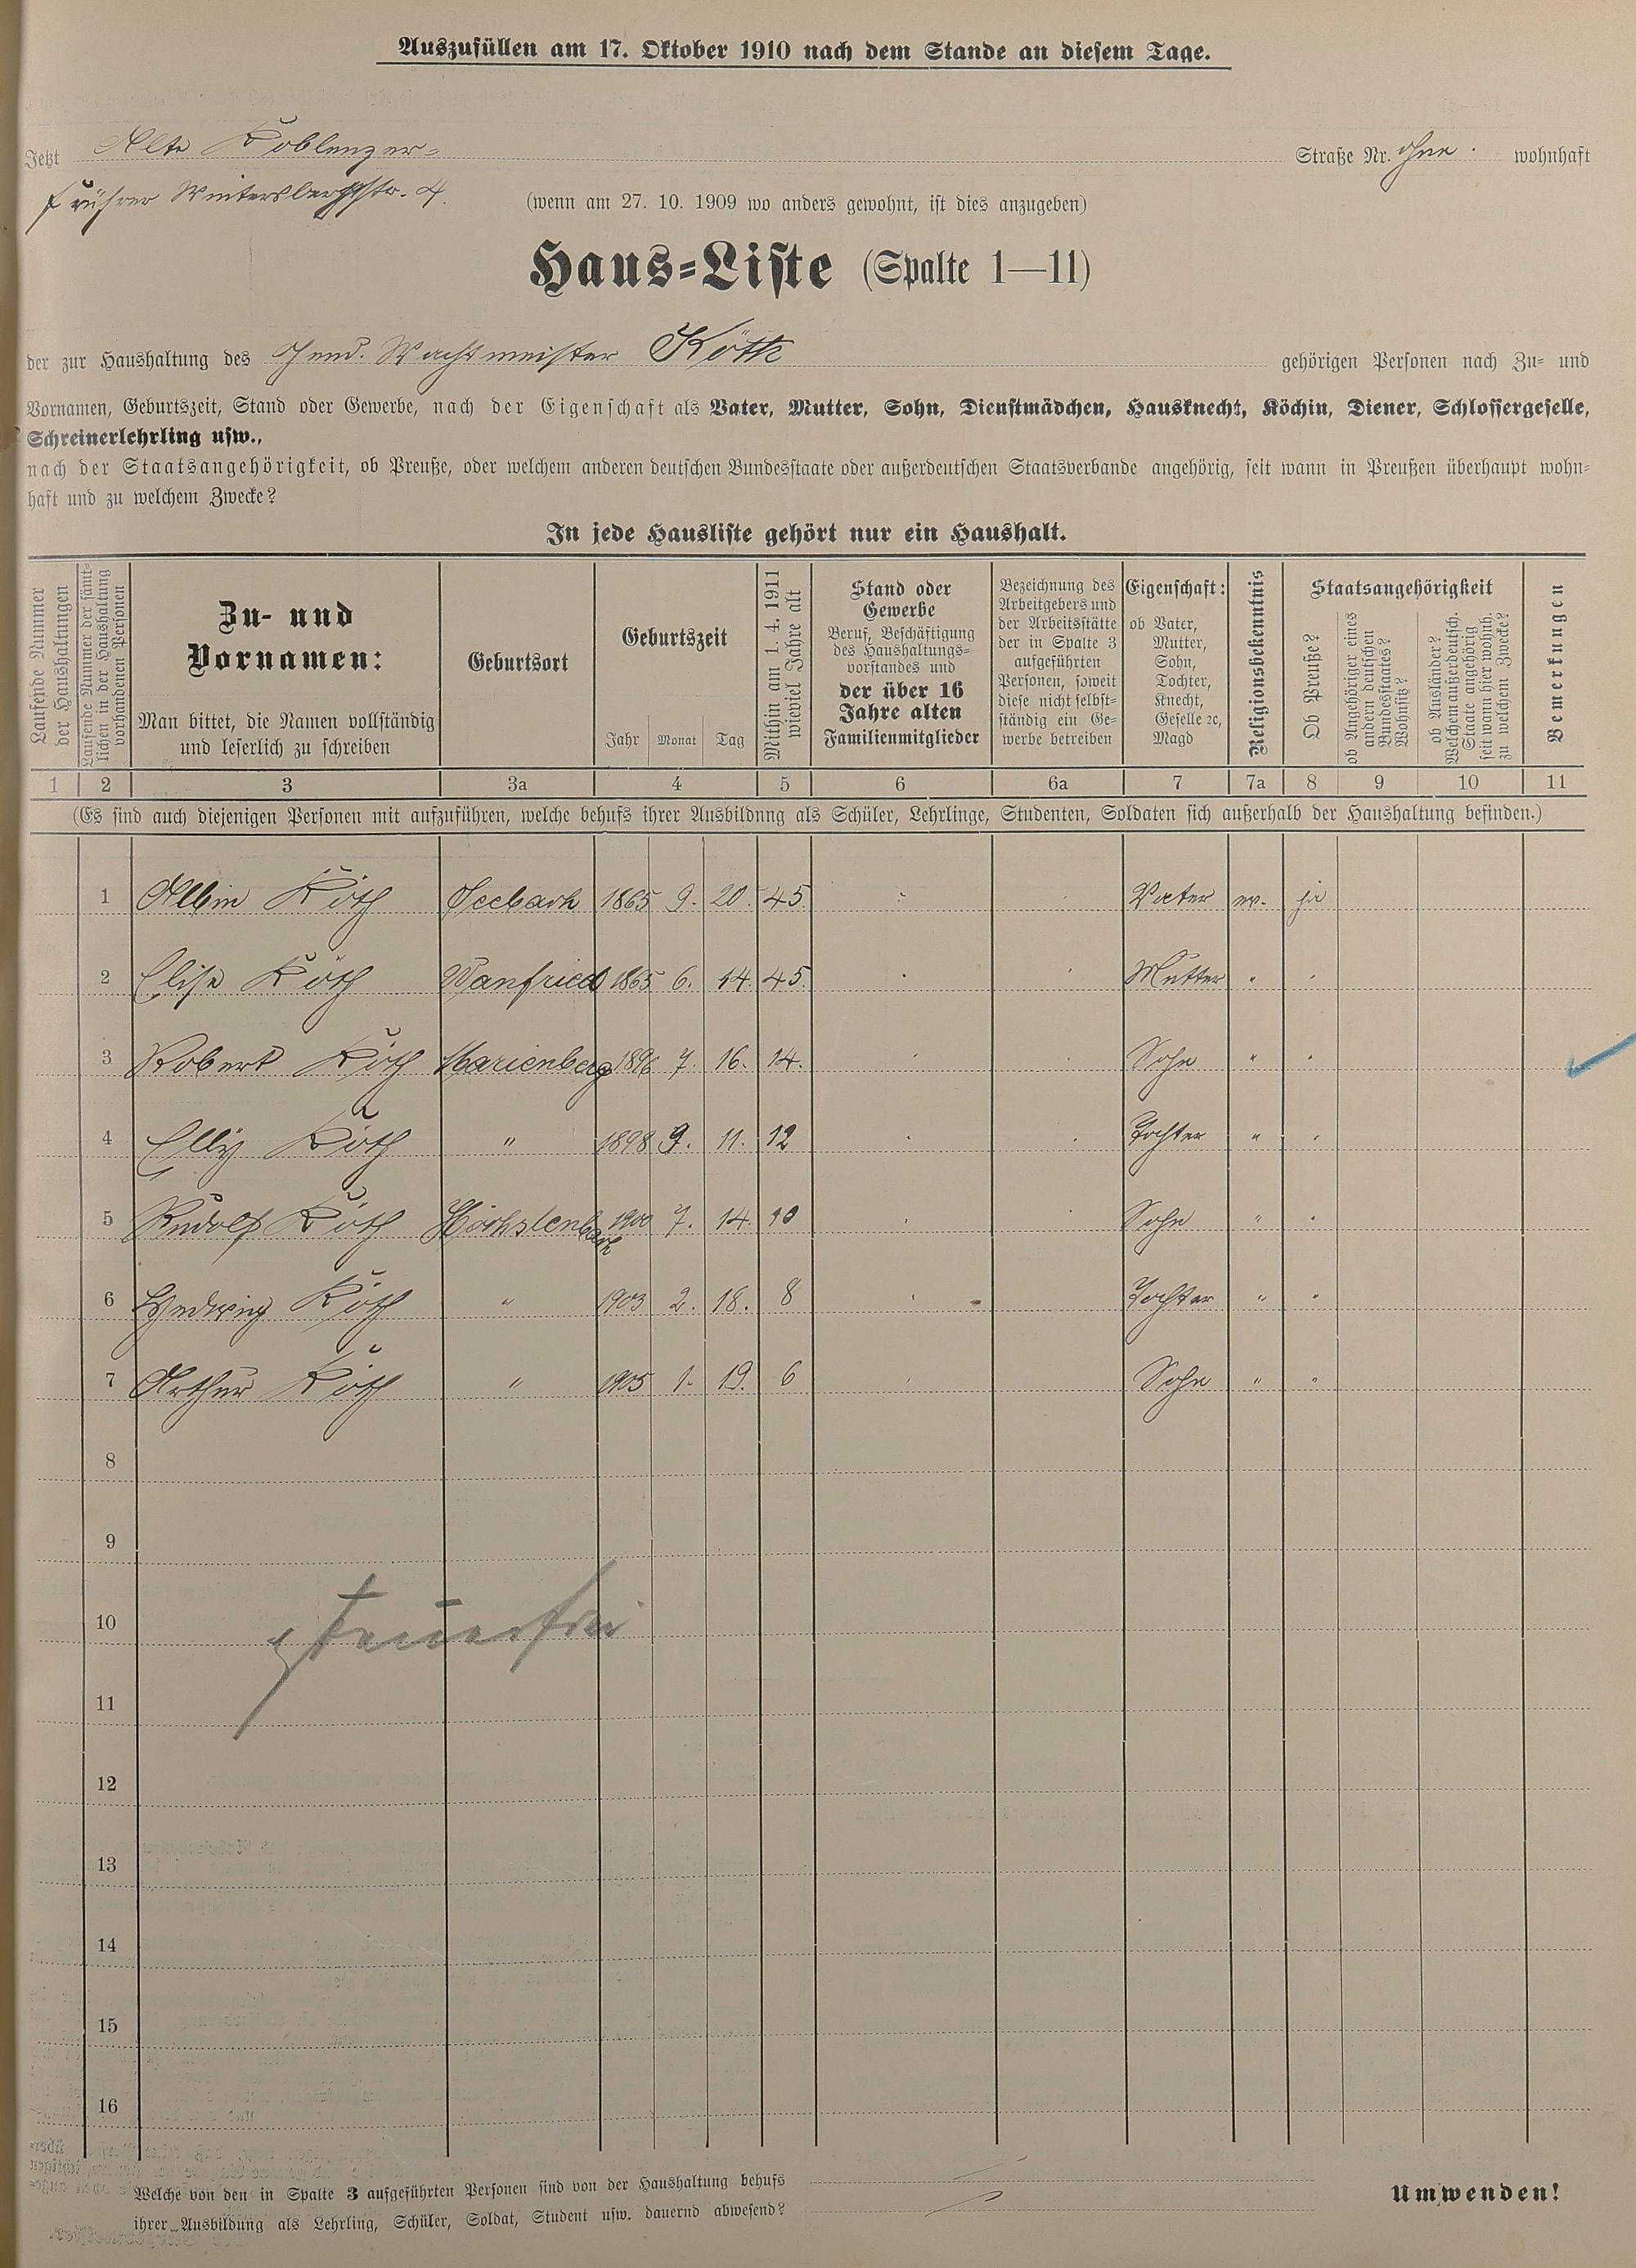 Auszufüllen am 17. Oktober 1910 nach dem Stande an diesem Tage.
Jetzt Alte Koblenzer= Straße Nr. ohne. wohnhaft
früher Wintersbergstr. 4.
(wenn am 27. 10. 1909 wo anders gewohnt, ist dies anzugeben)
Haus=Liste (Spalte 1—11)
der zur Haushaltung des Gend. Wachtmeister Köth gehörigen Personen nach Zu= und
Vornamen, Geburtszeit, Stand oder Gewerbe, nach der Eigenschaft als Vater, Mutter, Sohn, Dienstmädchen, Hausknecht, Köchin, Diener, Schlossergeselle,
Schreinerlehrling usw.,
nach der Staatsangehörigkeit, ob Preuße, oder welchem anderen deutschen Bundesstaate oder außerdeutschen Staatsverbande angehörig, seit wann in Preußen überhaupt wohn=
haft und zu welchem Zwecke?
In jede Hausliste gehört nur ein Haushalt.
Laufende Nummer
der Haushaltungen
Laufende Nummer der sämt=
lichen in der Haushaltung
vorhandenen Personen
Zu- und
Vornamen:
Man bittet, die Namen vollständig
und leserlich zu schreiben
Geburtsort
Geburtszeit
Jahr Monat Tag
Mithin am 1. 4. 1911
wieviel Jahre alt
Stand oder
Gewerbe
Beruf, Beschäftigung
des Haushaltungs=
vorstandes und
der über 16
Jahre alten
Familienmitglieder
Bezeichnung des
Arbeitgebers und
der Arbeitsstätte
der in Spalte 3
aufgeführten
Personen, soweit
diese nicht selbst=
ständig ein Ge=
werbe betreiben
Eigenschaft:
ob Vater,
Mutter,
Sohn,
Tochter,
Knecht,
Geselle ꝛc,
Magd
Religionsbekenntnis
Staatsangehörigkeit
Ob Preuße?
ob Angehöriger eines
andern deutschen
Bundesstaates?
Wohnsitz?
ob Ausländer?
Welchem außerdeutsch.
Staate angehörig
seit wann hier wohnh.
zu welchem Zwecke?
Bemerkungen
1 2 3 3a 4 5 6 6a 7 7a 8 9 10 11
(Es sind auch diejenigen Personen mit aufzuführen, welche behufs ihrer Ausbildung als Schüler, Lehrlinge, Studenten, Soldaten sich außerhalb der Haushaltung befinden.)
1 Albin Köth Seebach 1865 9. 20. 45. Vater ev. ja
2 Elise Köth Wanfried 1865 6. 14. 45. Mutter " "
3 Robert Köth Marienberg 1896 7. 16. 14. Sohn " "
4 Elly Köth " 1898 9. 11. 12 Tochter " "
5 Rudolf Köth Höchstenbach 1900 7. 14. 10 Sohn " "
6 Hedwig Köth " 1903 2. 18. 8 Tochter " "
7 Arthur Köth " 1905 1. 19. 6 Sohn " "
8
9
10 steuerfrei
11
12
13
14
15
16
Welche von den in Spalte 3 aufgeführten Personen sind von der Haushaltung behufs
ihrer Ausbildung als Lehrling, Schüler, Soldat, Student usw. dauernd abwesend?
Umwenden!